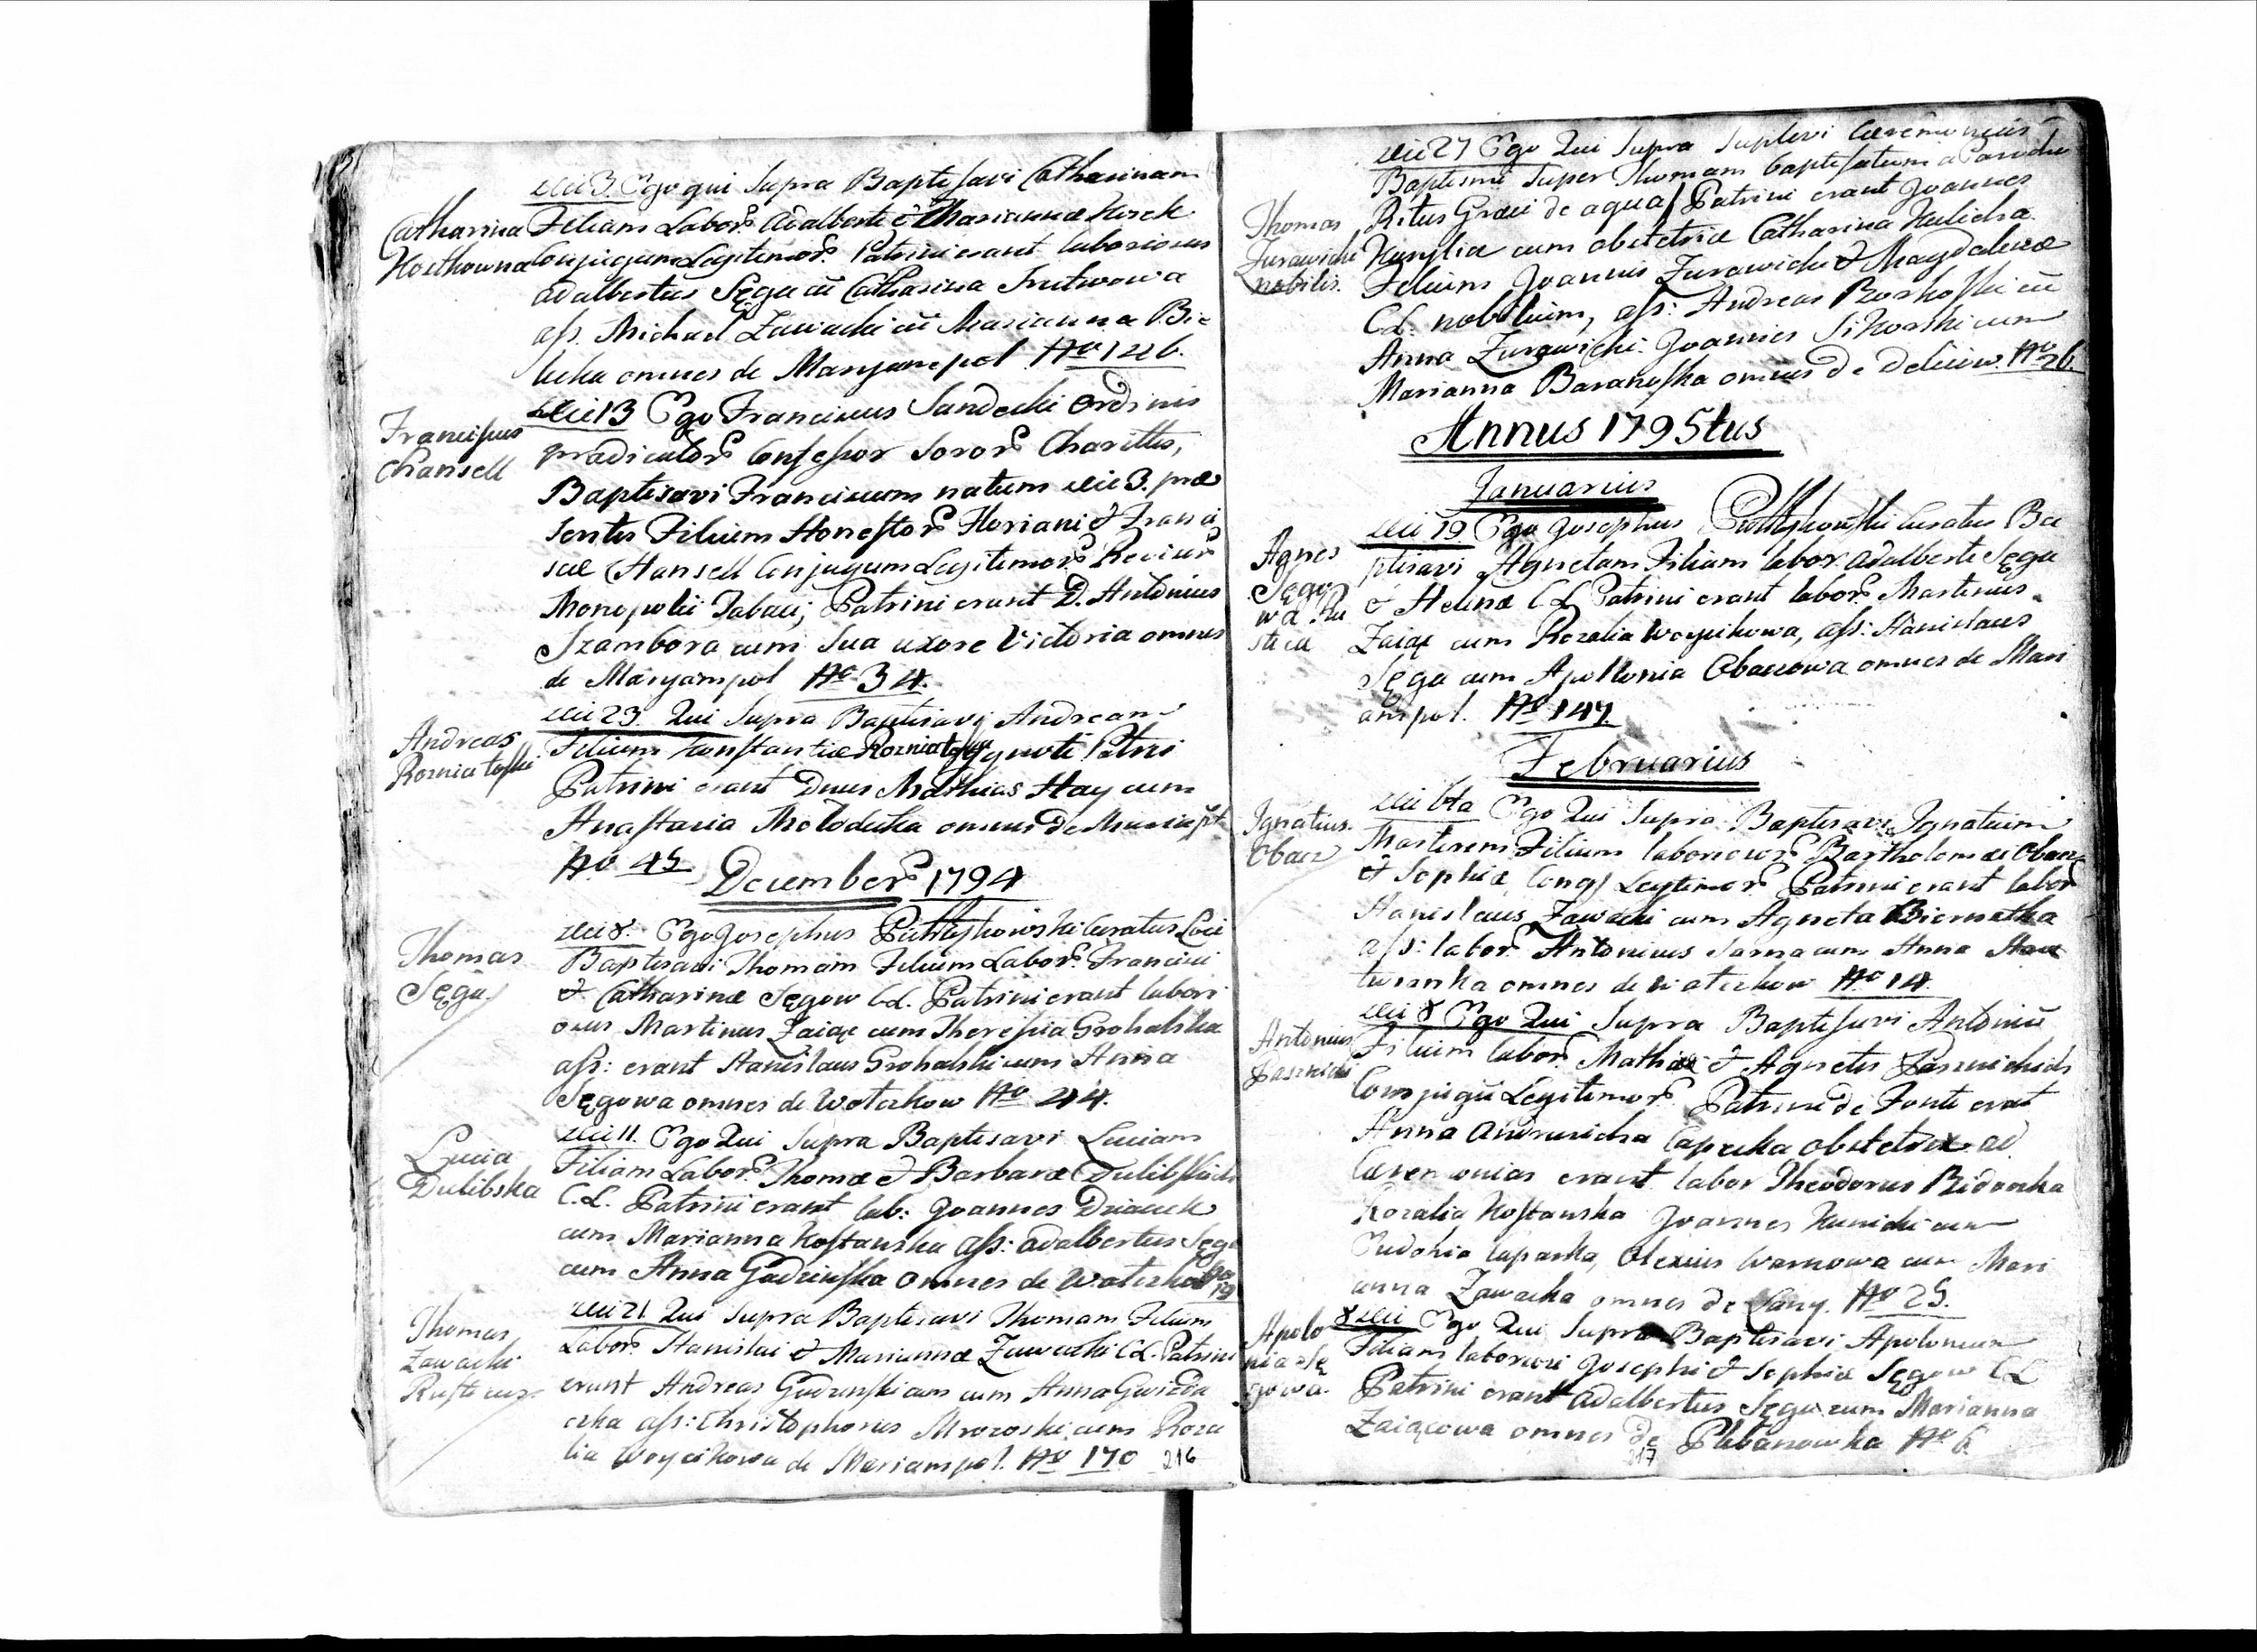 Catharina
Kosthowna
die 3. Ego qui Supra Baptisavi Catharinam
Filiam Labor. Adalberti & Mariannæ
Conjugum Legitimor. Patrini erant laboriosus
Adalbertus Sęga cũ Catharina
ass. Michael Zawadzki cũ Marianna Bi-
lecka omnes de Maryampol No 126.
Francissus
Chansell
die 13 Ego Franciscus Sandecki Ordinis
prædicator Confessor Soror Charittis,
Baptisavi Franciscum natum die 3. præ
sentis Filium Honestor Floriani & Franci
scæ Hansell Conjugum Legitimor.
Monopolii Tabaci, Patrini erant D. Antonius
Szambora cum sua uxore Victoria omnes
de Maryampol No 34.
Andreas
Rozniatoski
die 23. Qui Supra Baptisavi Andream
Filium Konstantiæ Ignoti Patris
Patrini erant Dnus Mathias Hay cum
Anastazia Molodecka omnes de Mariapl.
No 45
December 1794
Thomas
Sęga
die 8. Ego Josephus Curatus Loci
Baptisavi Thomam Filium Labor. Francisci
& Catharinæ Sęgow C.L. Patrini erant labori
osus Martinus Zaiąc cum Theressia Grohalska
ass: erant Stanislaus Grohalski cum Anna
Sęgowa omnes de Woterkow No 44.
Lucia
Dulibska
die 11. Ego Qui Supra Baptisavi Luciam
Filiam Labor. Thomæ & Barbaræ
C.L. Patrini erant lab: Joannes
cum Marianna Kostanska ass: Adalbertus Sęga
cum Anna omnes de No 19
Thomas
Zawacki
Rusticus
die 21 Qui Supra Baptisavi Thomam Filium
Labor. Stanislai & Mariannæ Zawacki C.L. Patrini
erant Andreas cum Anna Gwiazda
ass: Christophorus Mrozoski cum Roza
lia Woycikowa de Mariampol. No 170
216
Thomas
Zurawicki
nobilis.
die 27 Ego Qui Supra Suplevi Ceremonias
Baptismi Super Thomam baptisatum a Parocho
Ritus Græci de aqua/ Patrini erant Joannes
cum obstetrice Catharina
Filium Joannis Zurawicki & Magdalenæ
C.L. nobilium, ass: Andreas cũ
Anna Zurawicki. Joannes Sikorski cum
Marianna Baranoska omnes de Delieiow. No 26.
Annus 1795tus
Januarius
Agnes
Sęgo
wa Ru
stica
die 19. Ego Josephus Curatus Ba
ptisavi Agnetam Filiam labor. Adalberti Sęga
& Helenæ C.L. Patrini erant labor. Martinus
Zaiąc cum Rozalia Woycikowa, ass: Stanislaus
Sęga cum Apollonia Obaczowa omnes de Mari
ampol. No 147
Februarius
Ignatius
Obacz
die 6ta Ego Qui Supra Baptisavi Ignatium
Filium laborios. Bartholomæi Obacz
& Sophiæ Conj/ Legitimor. Patrini erant labor
Stanislaus Zawacki cum Agneta Biernatka
ass: labor. Antonius Sarna cum Anna
omnes de Woterkow No 14.
Antonius
die 8 Ego Qui Supra Baptisavi Antoniũ
Filium labor. Mathiæ & Agnetis
Conjugũ Legitimor. Patrini de Fonte erat
Anna obstetrix ad
Ceremonias erant labor Theodorus
Rozalia Kostanska Joannes Kunicki cum
Olexius cum Mari
anna Zawacka omnes de Lany. No 25.
Apolo
nia Sę
gowa.
8 die Ego Qui Supra Baptisavi Apoloniam
Filiam laboriosi Josephi & Sophiæ Sęgow C.L
Patrini erant Adalbertus Sęga cum Marianna
Zaiącowa omnes de Plebanowka No 6.
217